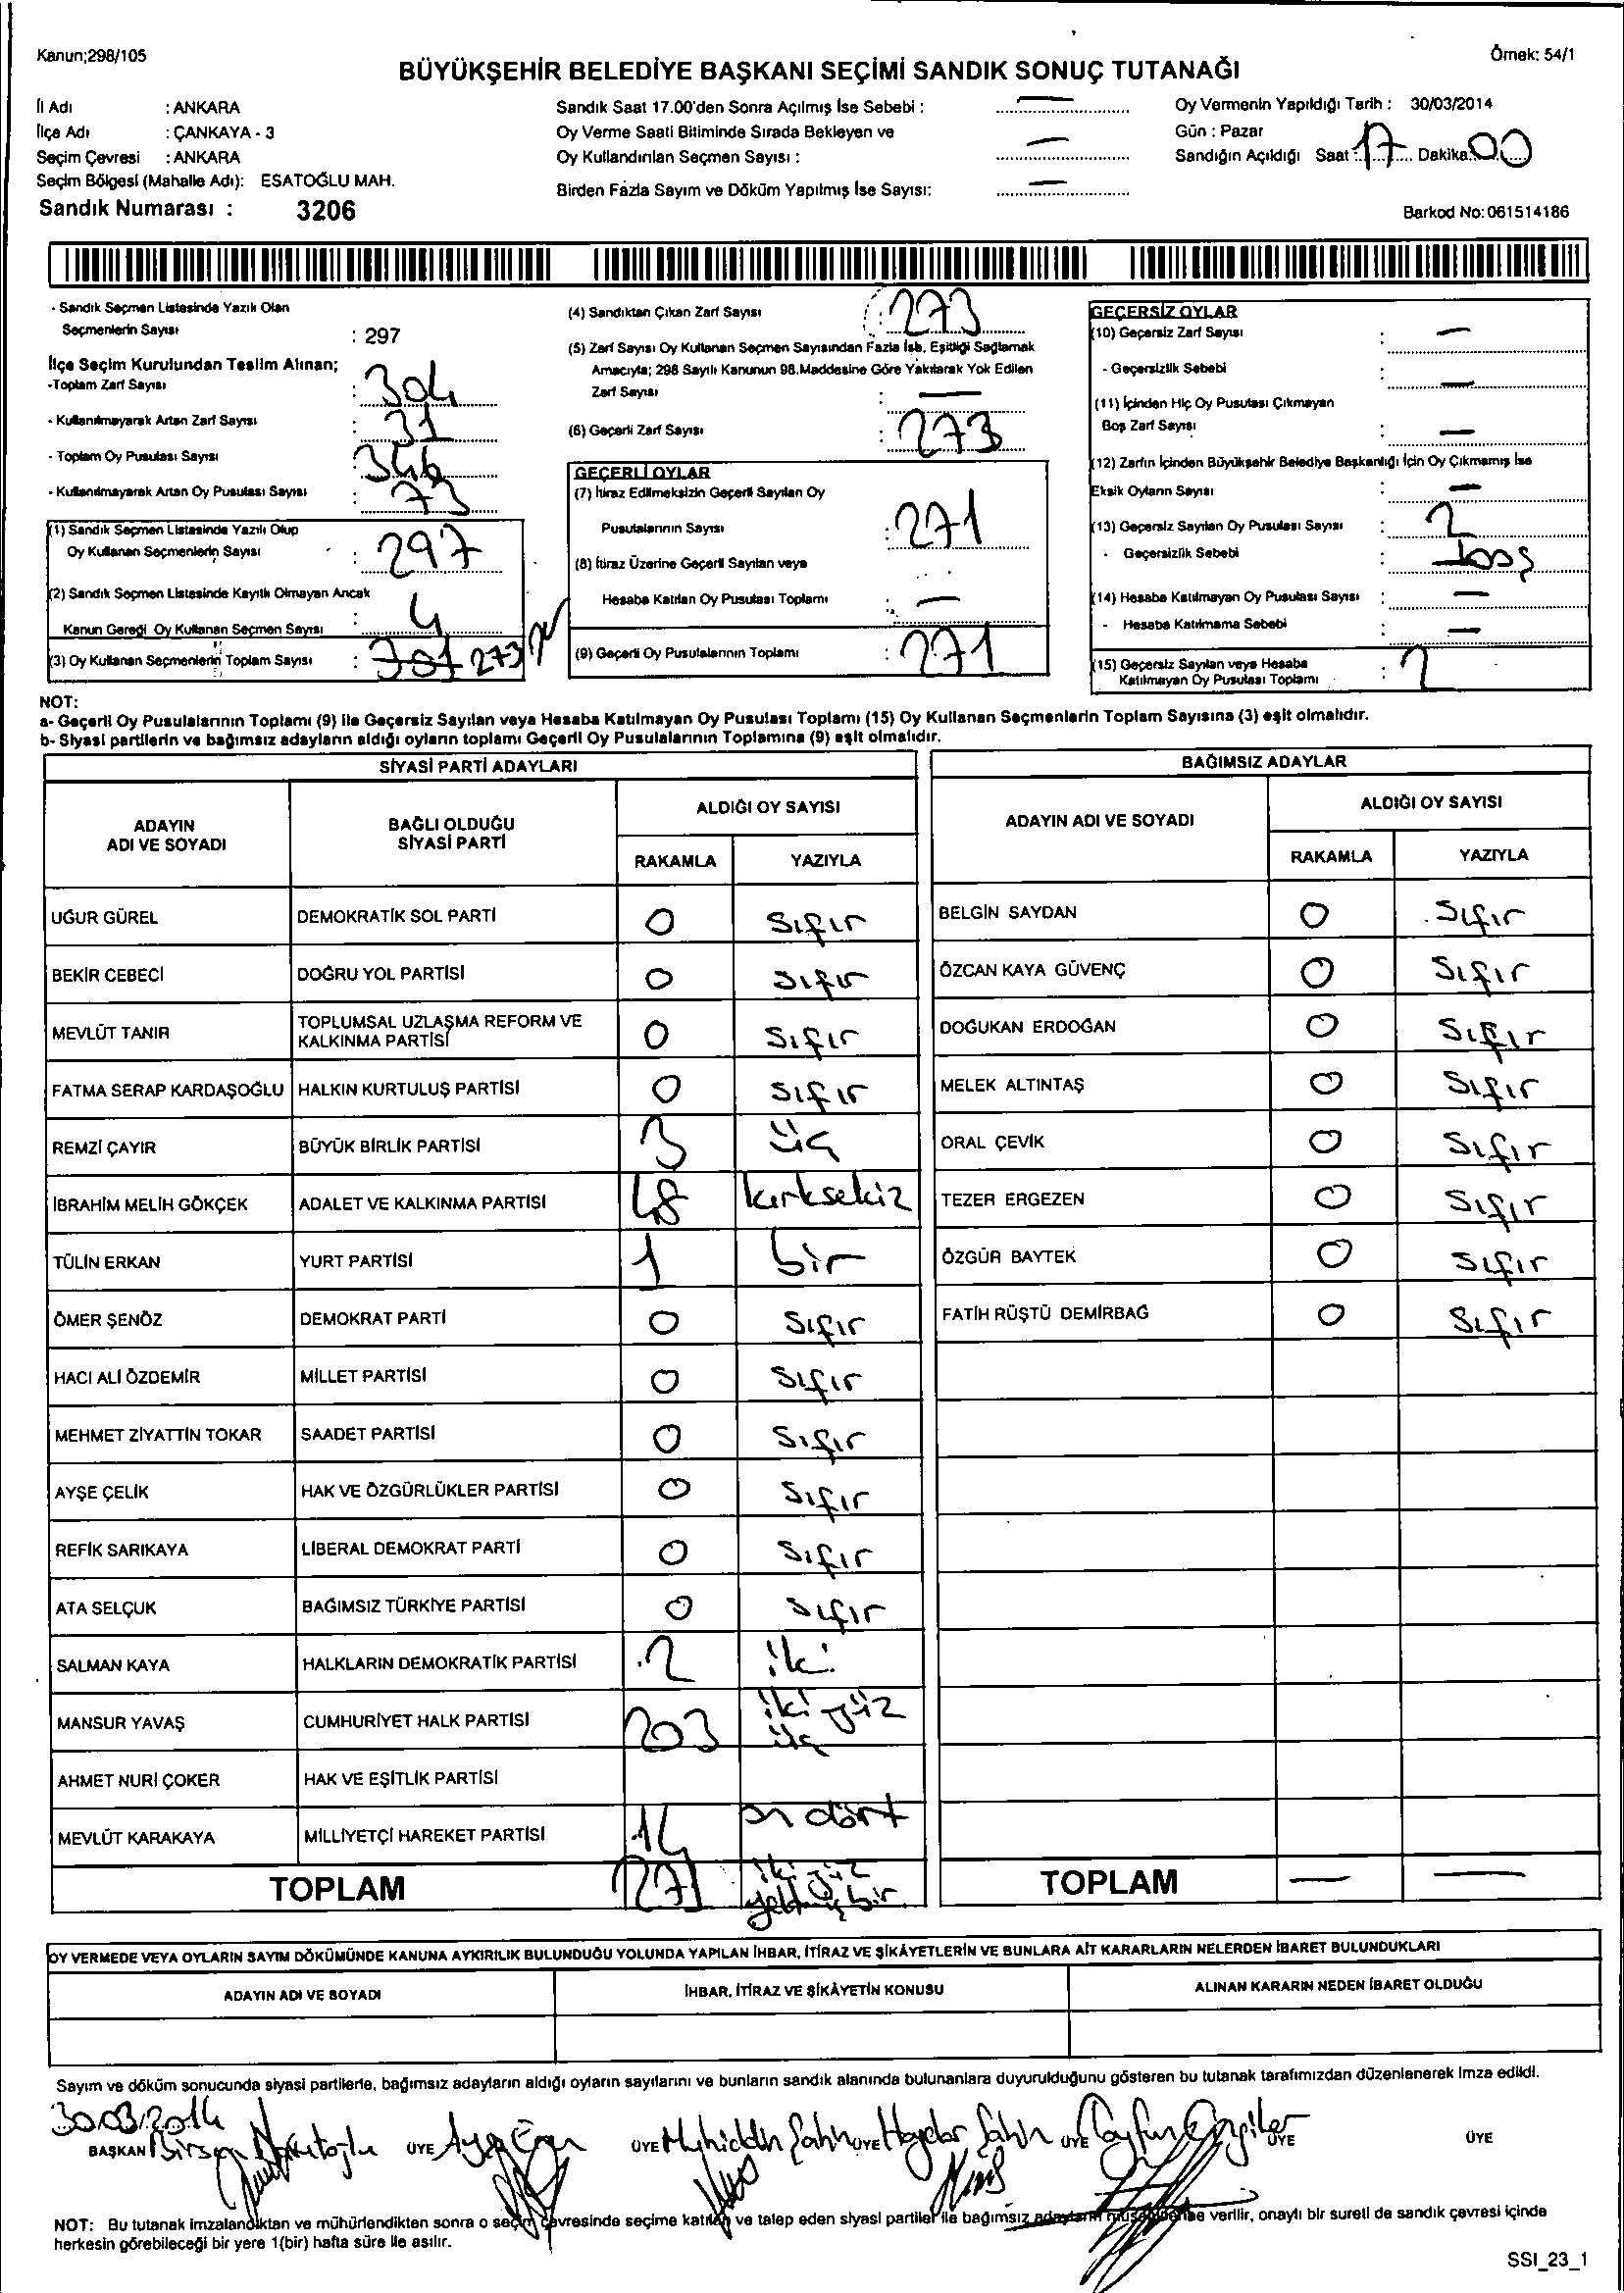 Kanun;298/105
Örnek: 54/1
BÜYÜKŞEHİR BELEDİYE BAŞKANI SEÇİMİ SANDIK SONUÇ TUTANAĞI
İl Adı : ANKARA
İlçe Adı : ÇANKAYA - 3
Seçim Çevresi : ANKARA
Seçim Bölgesi (Mahalle Adı): ESATOĞLU MAH.
Sandık Numarası : 3206
Sandık Saat 17.00'den Sonra Açılmış İse Sebebi : —
Oy Verme Saati Bitiminde Sırada Bekleyen ve
Oy Kullandırılan Seçmen Sayısı : —
Birden Fazla Sayım ve Döküm Yapılmış İse Sayısı: —
Oy Vermenin Yapıldığı Tarih : 30/03/2014
Gün : Pazar
Sandığın Açıldığı Saat : 17 Dakika: 00
Barkod No: 061514186
- Sandık Seçmen Listesinde Yazılı Olan
Seçmenlerin Sayısı : 297
İlçe Seçim Kurulundan Teslim Alınan;
-Toplam Zarf Sayısı : 304
- Kullanılmayarak Artan Zarf Sayısı : 31
- Toplam Oy Pusulası Sayısı : 346
- Kullanılmayarak Artan Oy Pusulası Sayısı : 73
(1) Sandık Seçmen Listesinde Yazılı Olup
Oy Kullanan Seçmenlerin Sayısı : 297
(2) Sandık Seçmen Listesinde Kayıtlı Olmayan Ancak
Kanun Gereği Oy Kullanan Seçmen Sayısı : 4
(3) Oy Kullanan Seçmenlerin Toplam Sayısı : 301 273
(4) Sandıktan Çıkan Zarf Sayısı : 273
(5) Zarf Sayısı Oy Kullanan Seçmen Sayısından Fazla İse, Eşitliği Sağlamak
Amacıyla; 298 Sayılı Kanunun 98.Maddesine Göre Yakılarak Yok Edilen
Zarf Sayısı : —
(6) Geçerli Zarf Sayısı : 273
GEÇERLİ OYLAR
(7) İtiraz Edilmeksizin Geçerli Sayılan Oy
Pusulalarının Sayısı : 271
(8) İtiraz Üzerine Geçerli Sayılan veya
Hesaba Katılan Oy Pusulası Toplamı : —
(9) Geçerli Oy Pusulalarının Toplamı : 271
GEÇERSİZ OYLAR
(10) Geçersiz Zarf Sayısı : —
- Geçersizlik Sebebi : —
(11) İçinden Hiç Oy Pusulası Çıkmayan
Boş Zarf Sayısı : —
(12) Zarfın İçinden Büyükşehir Belediye Başkanlığı İçin Oy Çıkmamış İse
Eksik Oyların Sayısı : —
(13) Geçersiz Sayılan Oy Pusulası Sayısı : 2
- Geçersizlik Sebebi : boş
(14) Hesaba Katılmayan Oy Pusulası Sayısı : —
- Hesaba Katılmama Sebebi : —
(15) Geçersiz Sayılan veya Hesaba
Katılmayan Oy Pusulası Toplamı : 2
NOT:
a- Geçerli Oy Pusulalarının Toplamı (9) ile Geçersiz Sayılan veya Hesaba Katılmayan Oy Pusulası Toplamı (15) Oy Kullanan Seçmenlerin Toplam Sayısına (3) eşit olmalıdır.
b- Siyasi partilerin ve bağımsız adayların aldığı oyların toplamı Geçerli Oy Pusulalarının Toplamına (9) eşit olmalıdır.
SİYASİ PARTİ ADAYLARI
ADAYIN ADI VE SOYADI
BAĞLI OLDUĞU SİYASİ PARTİ
ALDIĞI OY SAYISI
RAKAMLA YAZIYLA
UĞUR GÜREL DEMOKRATİK SOL PARTİ 0 sıfır
BEKİR CEBECİ DOĞRU YOL PARTİSİ 0 sıfır
MEVLÜT TANIR TOPLUMSAL UZLAŞMA REFORM VE KALKINMA PARTİSİ 0 sıfır
FATMA SERAP KARDAŞOĞLU HALKIN KURTULUŞ PARTİSİ 0 sıfır
REMZİ ÇAYIR BÜYÜK BİRLİK PARTİSİ 3 üç
İBRAHİM MELİH GÖKÇEK ADALET VE KALKINMA PARTİSİ 48 kırksekiz
TÜLİN ERKAN YURT PARTİSİ 1 bir
ÖMER ŞENÖZ DEMOKRAT PARTİ 0 sıfır
HACI ALİ ÖZDEMİR MİLLET PARTİSİ 0 sıfır
MEHMET ZİYATTİN TOKAR SAADET PARTİSİ 0 sıfır
AYŞE ÇELİK HAK VE ÖZGÜRLÜKLER PARTİSİ 0 sıfır
REFİK SARIKAYA LİBERAL DEMOKRAT PARTİ 0 sıfır
ATA SELÇUK BAĞIMSIZ TÜRKİYE PARTİSİ 0 sıfır
SALMAN KAYA HALKLARIN DEMOKRATİK PARTİSİ 2 iki
MANSUR YAVAŞ CUMHURİYET HALK PARTİSİ 203 iki yüz üç
AHMET NURİ ÇOKER HAK VE EŞİTLİK PARTİSİ
MEVLÜT KARAKAYA MİLLİYETÇİ HAREKET PARTİSİ 14 on dört
TOPLAM 271 iki yüz yetmiş bir
BAĞIMSIZ ADAYLAR
ADAYIN ADI VE SOYADI
ALDIĞI OY SAYISI
RAKAMLA YAZIYLA
BELGİN SAYDAN 0 sıfır
ÖZCAN KAYA GÜVENÇ 0 sıfır
DOĞUKAN ERDOĞAN 0 sıfır
MELEK ALTINTAŞ 0 sıfır
ORAL ÇEVİK 0 sıfır
TEZER ERGEZEN 0 sıfır
ÖZGÜR BAYTEK 0 sıfır
FATİH RÜŞTÜ DEMİRBAĞ 0 sıfır
TOPLAM — —
OY VERMEDE VEYA OYLARIN SAYIM DÖKÜMÜNDE KANUNA AYKIRILIK BULUNDUĞU YOLUNDA YAPILAN İHBAR, İTİRAZ VE ŞİKÂYETLERİN VE BUNLARA AİT KARARLARIN NELERDEN İBARET BULUNDUKLARI
ADAYIN ADI VE SOYADI İHBAR, İTİRAZ VE ŞİKÂYETİN KONUSU ALINAN KARARIN NEDEN İBARET OLDUĞU
Sayım ve döküm sonucunda siyasi partilerle, bağımsız adayların aldığı oyların sayılarını ve bunların sandık alanında bulunanlara duyurulduğunu gösteren bu tutanak tarafımızdan düzenlenerek imza edildi.
30.03.2014
BAŞKAN Birsen ÜYE Ayşe ÜYE Muhiddin Şahin ÜYE Haydar Şahin ÜYE Tayfun ÜYE ÜYE
NOT: Bu tutanak imzalandıktan ve mühürlendikten sonra o seçim çevresinde seçime katılan ve talep eden siyasi partiler ile bağımsız adayların müşahitlerine verilir, onaylı bir sureti de sandık çevresi içinde
herkesin görebileceği bir yere 1(bir) hafta süre ile asılır.
SSI_23_1